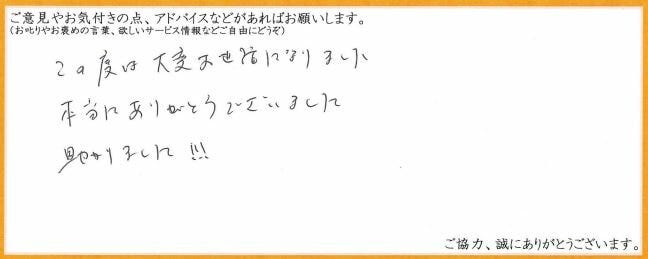 ご意見やお気付きの点、アドバイスなどがあればお願いします。
(お叱りやお褒めの言葉、欲しいサービス情報などご自由にどうぞ)
この度は大変お世話になりました
本当にありがとうございました
助かりました!!!
ご協力、誠にありがとうございます。